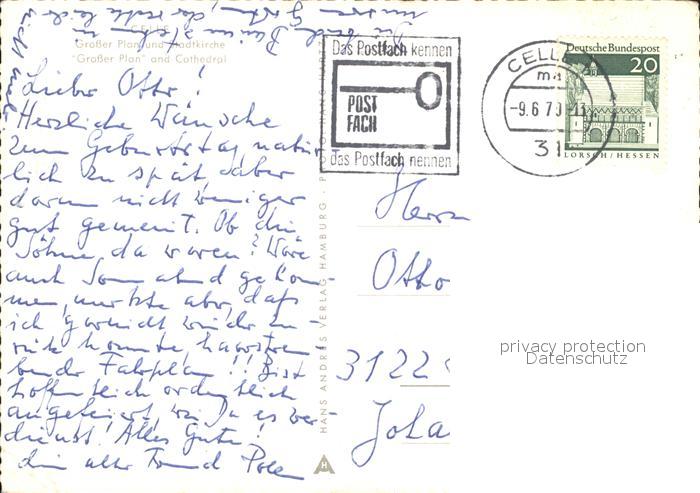 CELLE
Großer Plan und Stadtkirche
"Großer Plan" and Cathedral
Lieber Otto!
Herzliche Wünsche
zum Geburtstag natür-
lich zu spät, aber
darum nicht weniger
gut gemeint. Ob die
Söhne da waren? Wäre
auch Sonnabend gekom-
men, merkte aber, daß
ich garnicht wieder zu-
rück konnte, haarsträu-
bender Fahrplan!! Bist
hoffentlich ordentlich
angefeiert, wie Du es ver-
dienst! Alles Gute!
Dein alter Freund
HANS ANDRES VERLAG HAMBURG
Das Postfach kennen
POST
FACH
das Postfach nennen
CELLE
-9.6.70-13
31
Deutsche Bundespost
20
LORSCH/HESSEN
Herrn
Otto
3122
Joha
privacy protection
Datenschutz